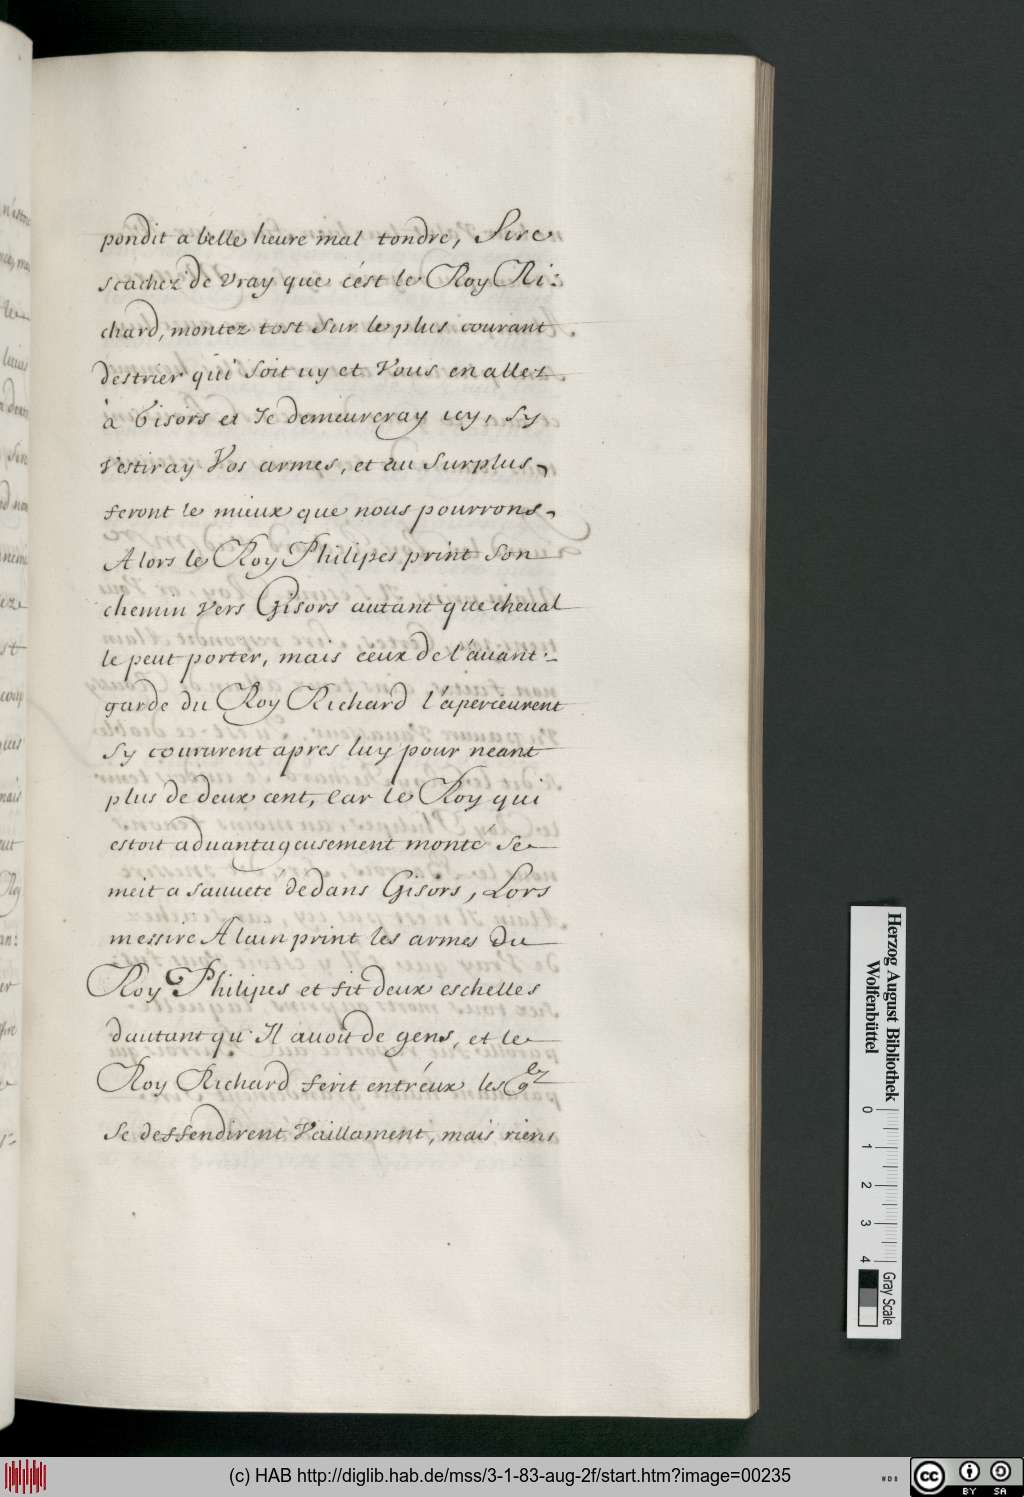 pondit a belle heure mal tondre, Sire
scachez de vray que c'est le Roy Ri:
chard, montez tost sur le plus courant
destrier qui soit icy et Vous en allez
à Gisors et Je demeureray icy, sy
vestiray Vos armes, et au surplus
feront le mieux que nous pourrons.
Alors le Roy Philipes print son
chemin vers Gisors autant que cheval
le peut porter, mais ceux de l'avant-
garde du Roy Richard l'aperceurent
sy coururent apres luy pour neant
plus de deux cent, Car le Roy qui
estoit advantageusement monté se
meit a sauveté dedans Gisors, Lors
messire Alain print les armes du
Roy Philipes et fit deux eschelles
dautant qu'Il avoit de gens, et le
Roy Richard ferit entr'eux les
se deffendirent Vaillament, mais riens
Herzog August Bibliothek
Wolfenbüttel
0 1 2 3 4
Gray Scale
(c) HAB http://diglib.hab.de/mss/3-1-83-aug-2f/start.htm?image=00235
WDB
cc BY SA